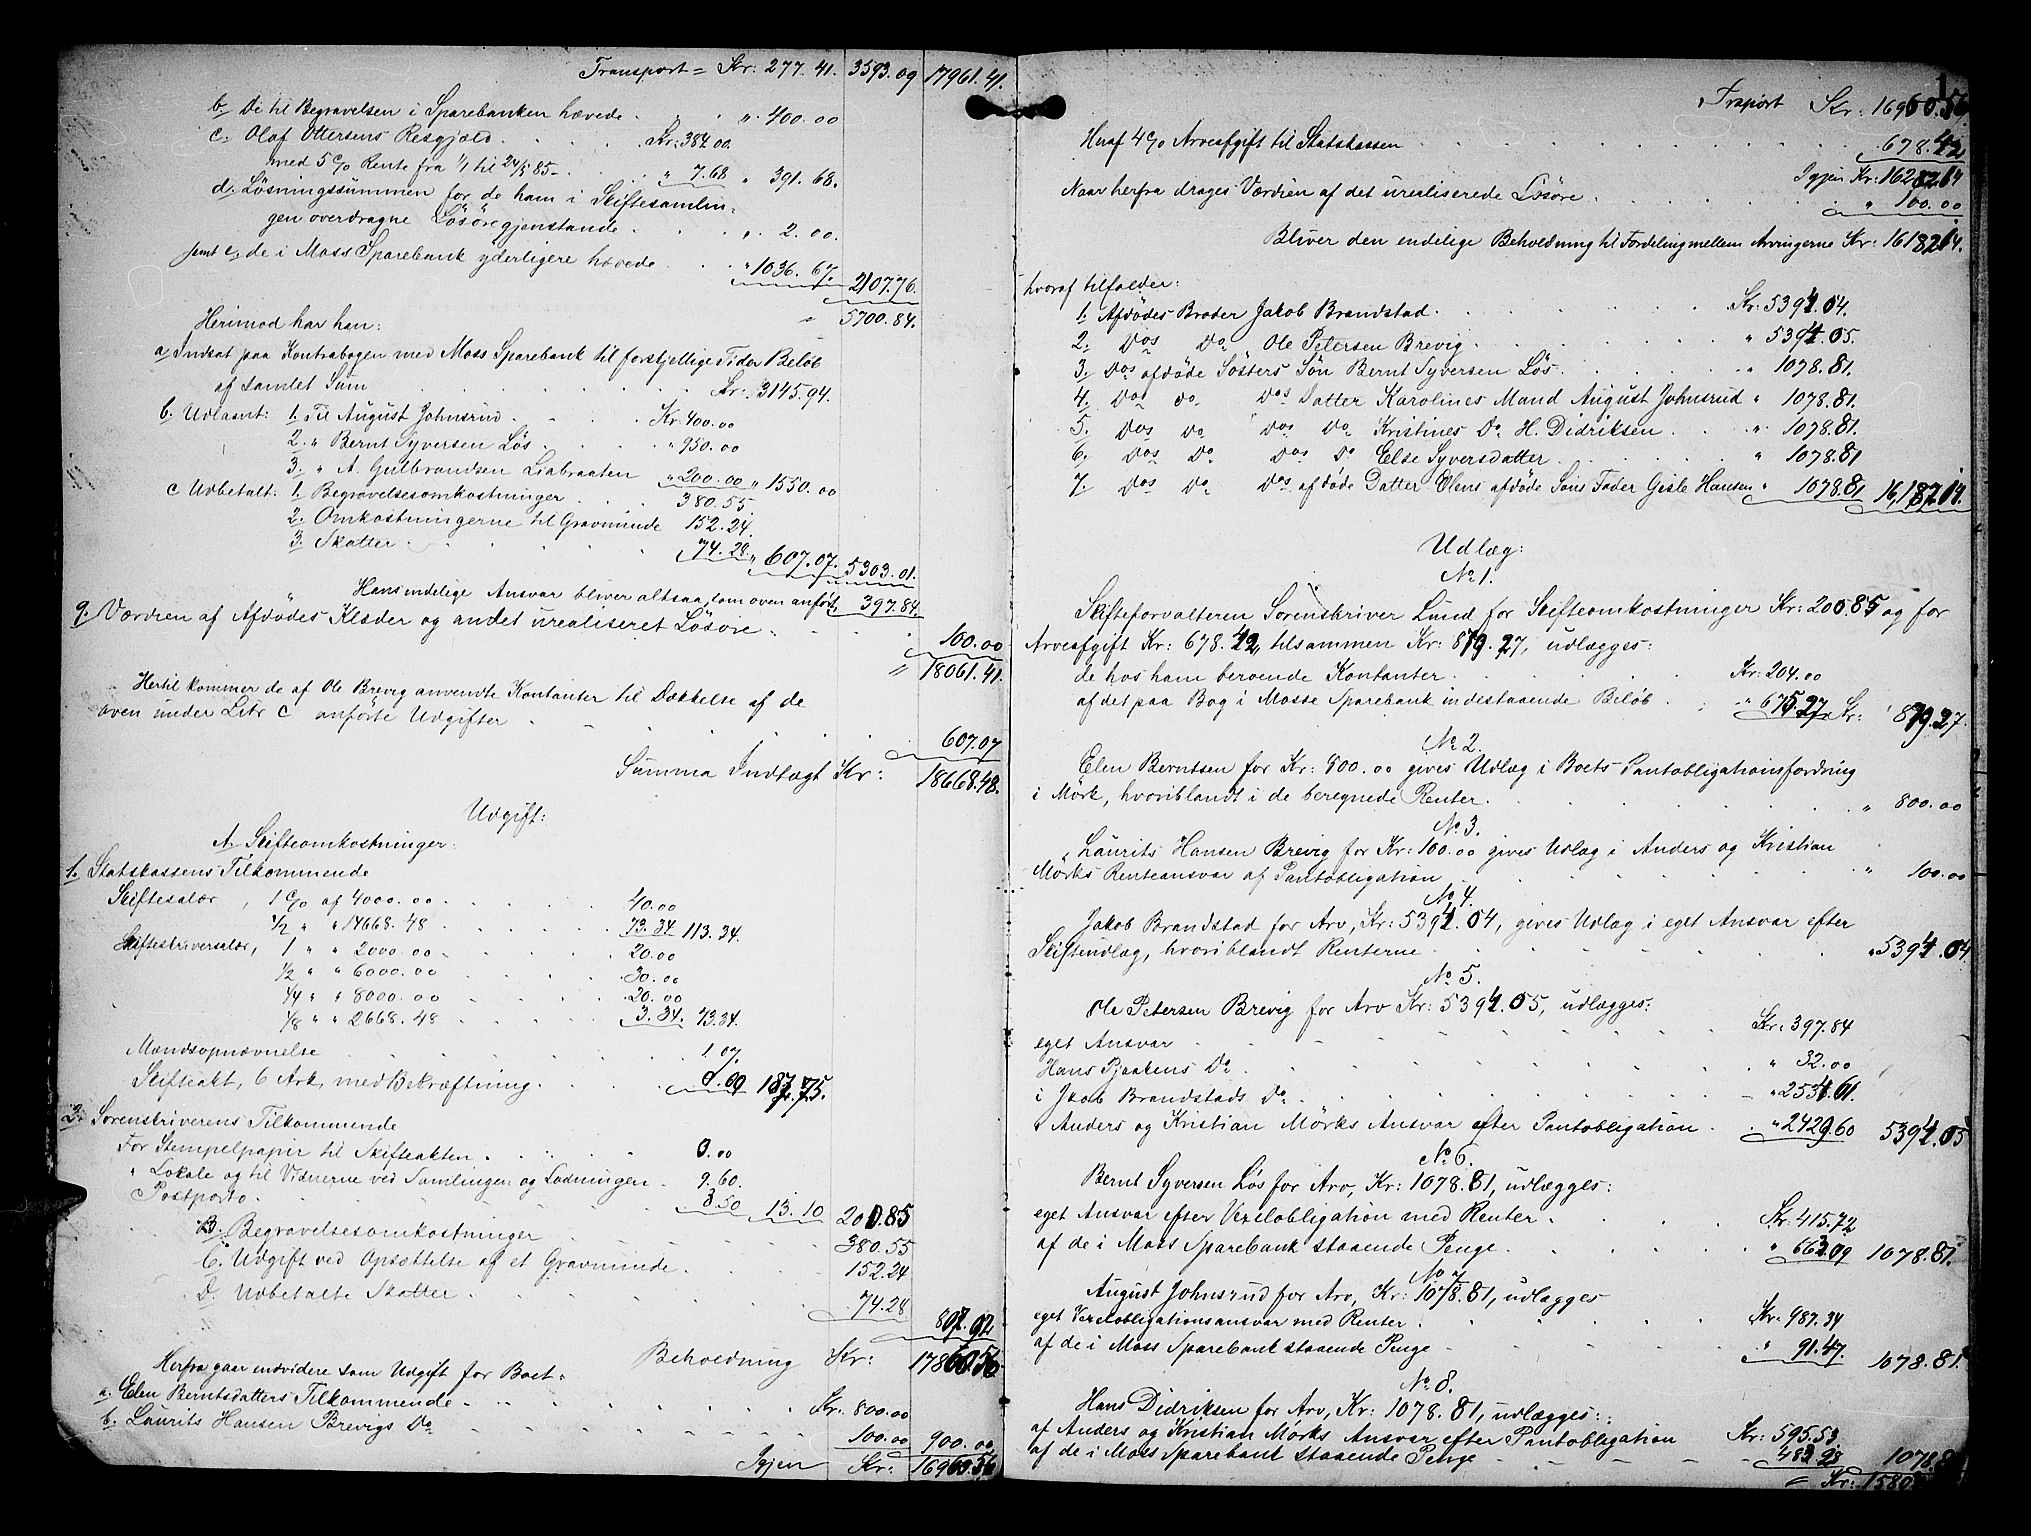 Transport = Kr: 277.41. 3593.09 17961.41.
b. De til Begravelsen i Sparebanken hævede . . " 400.00
c. Olaf Ottersens Restgjæld . . . Kr: 384.00.
med 5 % Rente fra 1/1 til 24/5 85 - . . " 7.68 " 391.68.
d. Løsningssummen for de ham i Skiftesamlin-
gen overdragne Løsøregjenstande . . . " 2.00.
samt e, de i Moss Sparebank yderligere hævede . . " 1036.67. 2107.76.
" 5700.84.
Herimod har han:
a Indsat paa Kontrabogen med Moss Sparebank til forskjellige Tider Beløb
af samlet Sum . . . Kr: 3145.94.
b. Udlaant: 1. Til August Johnsrud . . . Kr. 400.00
2. " Bernt Syversen Løs . . . " 950.00
3. " A. Gulbrandsen Liabraaten " 200.00 " 1550.00
c Udbetalt: 1. Begravelsesomkostninger . . . 380.55.
2. Omkostningerne til Gravminde 152.24.
3. Skatter . . . 74.28. " 607.07. 5303.01.
Hans endelige Ansvar bliver altsaa, som oven anført. 397.84.
9. Værdien af Afdødes Klæder og andet urealiseret Løsøre . . . 100.00
" 18061.41.
Hertil kommer de af Ole Brevig anvendte Kontanter til Dækkelse af de
oven under Litr c anførte Udgifter . . . 607.07
Summa Indtægt Kr: 18668.48.
Udgift:
A. Skifteomkostninger:
1. Statskassens Tilkommende
Skiftesalær, 1 % af 4000.00 . . . 40.00
1/2 " " 14668.48 . . . 73.34 113.34.
Skifteskriversalær, 1 " " 2000.00 . . . 20.00
1/2 " " 6000.00 . . . 30.00
1/4 " " 8000.00 . . . 20.00
1/8 " " 2668.48 . . . 3.34. 73.34.
Mandsopnævnelse . . . 1.07.
Skifteakt, 6 Ark, med Bekræftning . . . 0.00 187.75.
2. Sorenskriverens Tilkommende
For Stempelpapir til Skifteakten . . . 0.00
" Lokale og til Vidnerne ved Samlingen og Lodningen . 9.60.
Postporto . . . 3.50 13.10 200.85
B. Begravelsesomkostninger . . . 380.55
C. Udgift ved Opsættelse af et Gravminde . . . 152.24
D. Udbetalte Skatter . . . 74.28
807.92
Behodning Kr: 17860.56
Herfra gaar endvidere som Udgift for Boet.
a. Elen Berntsdatters Tilkommende . . . Kr: 800.00
b. Laurits Hansen Brevigs Do . . . 100.00 900.00
Igjen Kr: 16960.56
Trsport Kr: 16960.56
Heraf 4 % Arveafgift til Statskassen . . . 678.42
Igjen Kr: 16282.14
Naar herfra drages Værdien af det urealiserede Løsøre . . . " 100.00
Bliver den endelige Beholdning til Fordeling mellem Arvingerne Kr: 16182.14.
hvoraf tilfalder:
1. Afdødes Broder Jakob Brandstad . . . Kr: 5394.04.
2. Dos Do Ole Petersen Brevig . . . " 5394.05.
3. Dos afdøde Søsters Søn Bernt Syversen Løs . . . " 1078.81.
4. Dos do Dos Datter Karolines Mand August Johnsrud " 1078.81.
5. Dos do Dos Do Kristines Do H. Didriksen . . . " 1078.81.
6. Dos Do Dos Do Else Syversdatter . . . " 1078.81
7. Dos Do Dos afdøde Datter Elens afdøde Søns Fader Gisle Hansen " 1078.81 16,182.14.
Udlæg:
No 1.
Skifteforvalteren Sorenskriver Lund for Skifteomkostninger Kr: 200.85 og for
Arveafgift Kr: 678.42, tilsammen Kr: 879.27, udlægges:
de hos ham beroende Kontanter . . . Kr: 204.00
af det paa Bog i Mosse Sparebank indestaaende Beløb . . . " 675.27. Kr: 879.27.
No 2.
Elen Berntsen for Kr: 800.00 gives Udlæg i Boets Pantobligationsfordring
i Mörk, hvoriblandt i de beregnede Renter . . . " 800.00
No 3.
Laurits Hansen Brevig for Kr: 100.00 gives Udlæg i Anders og Kristian
Mörks Renteansvar af Pantobligation . . . " 100.00
No 4.
Jakob Brandstad for Arv, Kr: 5394.04, gives Udlæg i eget Ansvar efter
Skifteudlæg, hvoriblandt Renterne . . . " 5394.04
No 5.
Ole Petersen Brevig for Arv Kr: 5394.05, udlægges:
eget Ansvar . . . Kr: 397.84
Hans Pjaakens Do . . . " 32.00
i Jakob Brandstads Do . . . " 2534.61.
" Anders og Kristian Mörks Ansvar efter Pantobligation . . " 2429.60 5394.05
No 6.
Bernt Syversen Løs for Arv, Kr: 1078.81, udlægges:
eget Ansvar efter Vexelobligation med Renter . . . Kr: 415.72
af de i Moss Sparebank staaende Penge . . . " 663.09 1078.81.
No 7
August Johnsrud for Arv, Kr: 1078.81, udlægges
eget Vexelobligationsansvar med Renter . . . Kr: 987.34
af de i Moss Sparebank staaende Penge . . . " 91.47. 1078.81.
No 8.
Hans Didriksen for Arv, Kr: 1078.81, udlægges:
af Anders og Kristian Mörks Ansvar efter Pantobligation Kr: 595.53
af de i Moss Sparebank staaende Penge . . . 483.28 1078.81